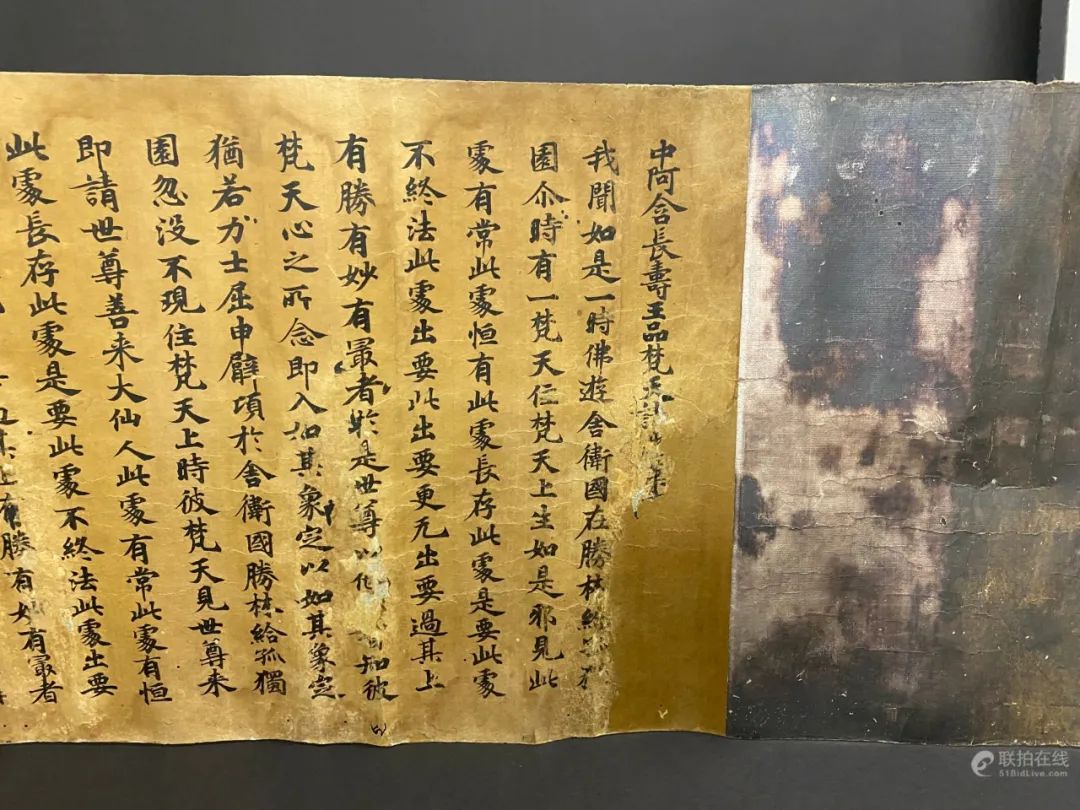 中阿含長壽王品梵天請
我聞如是一時佛遊舍衛國在勝林給
園尒時有一梵天仁梵天上生如是邪見此
處有常此處恒有此處長存此處是要此處
不終法此處出要此出要更无出要過其上
有勝有妙有最者於是世尊以他知彼
梵天心之所念即入如其象定以如其象定
猶若力士屈申臂頃於舍衛國勝林給孤獨
園忽没不現住梵天上時彼梵天見世尊来
即請世尊善来大仙人此處有常此處有恒
此處長存此處是要此處不終法此處出要
其上有勝有妙有最者
联拍在线
51BidLive.com